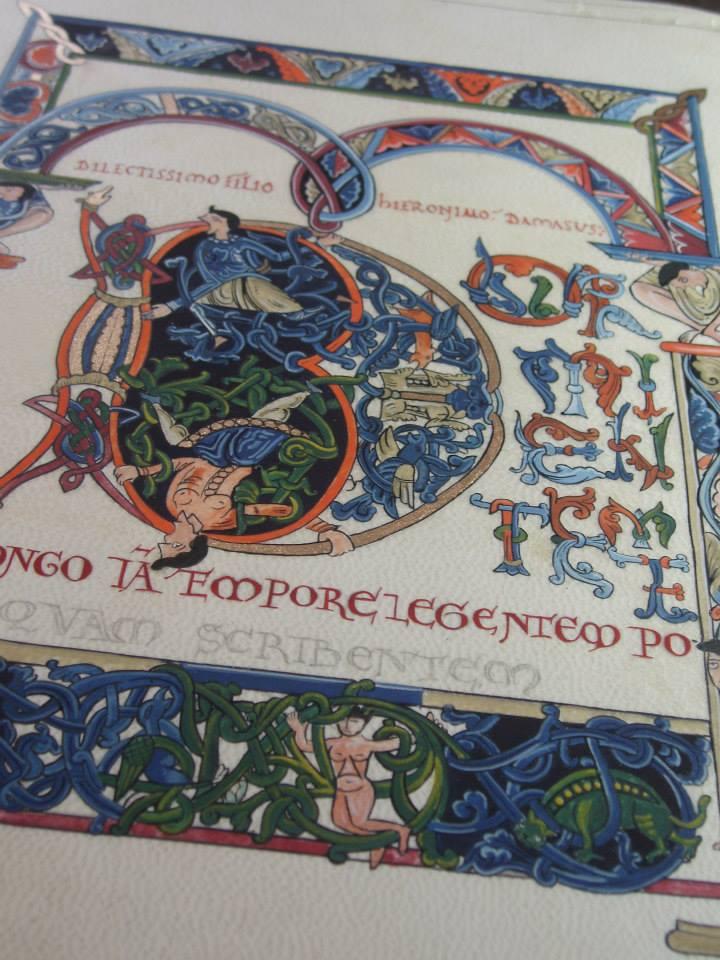 DILECTISSIMO FILIO
hIERONIMO. DAMASUS:
ONGO IĀ TEMPORE LEGENTEM PO
QVAM SCRIBENTEM